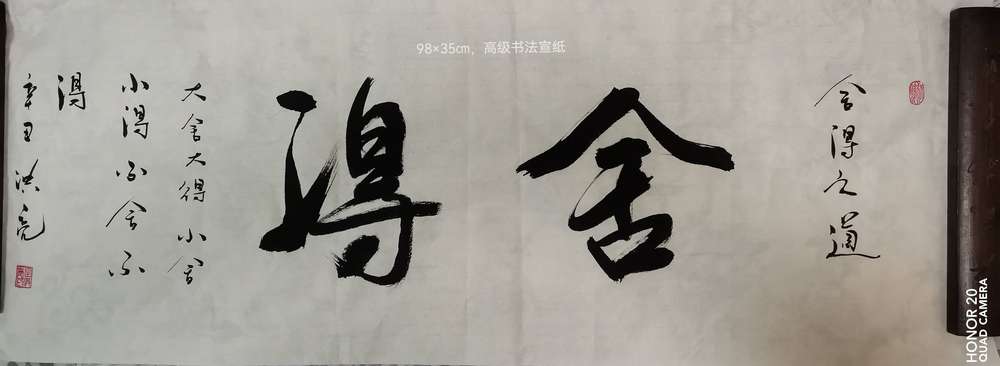 98×35cm，高级书法宣纸
舍得之道
舍得
大舍大得小舍
小得不舍不
得
辛丑洪亮
HONOR 20
QUAD CAMERA